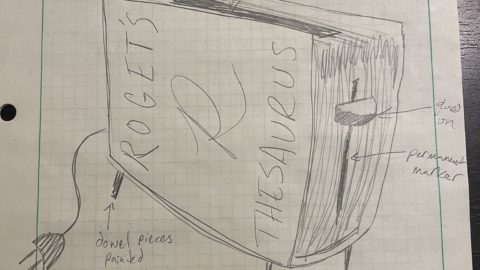 ROGET'S
R
THESAURUS
glued
on
permanent
marker
dowel pieces
painted